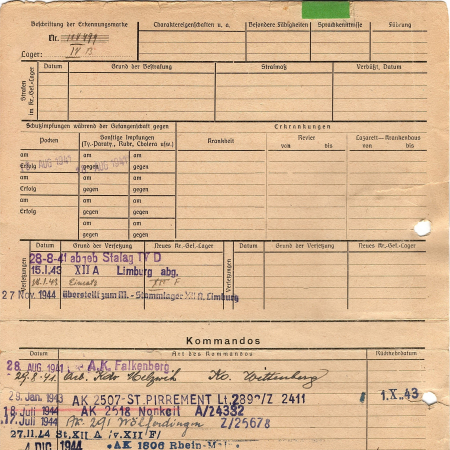 Beschriftung der Erkennungsmarke
Nr.
Lager: IV B
Charaktereigenschaften u. a.
Besondere Fähigkeiten
Sprachkenntnisse
Führung
Strafen im Kr.-Gef.-Lager
Datum
Grund der Bestrafung
Strafmaß
Verbüßt, Datum
Schutzimpfungen während der Gefangenschaft gegen
Pocken
Sonstige Impfungen
(Ty.-Paraty., Ruhr, Cholera usw.)
Erkrankungen
Krankheit
Revier
von bis
Lazarett - Krankenhaus
von bis
am am
Erfolg gegen
AUG 1941 AUG 1941
am am
Erfolg gegen
am am
Erfolg gegen
am
gegen
am
gegen
Versetzungen
Datum
Grund der Versetzung
Neues Kr.-Gef.-Lager
Versetzungen
Datum
Grund der Versetzung
Neues Kr.-Gef.-Lager
28-8-41 abgeb Stalag IV D
15.1.43 XII A Limburg abg.
XII F
27 Nov. 1944 überstellt zum M. - Stammlager XII A, Limburg
Kommandos
Datum
Art des Kommandos
Rückkehrdatum
28 AUG. 1941 A.K. Falkenberg
29.8.41. Arb. Kdo Ko. Wittenberg
29. Jan. 1943 AK 2507-ST.PIRREMENT Lt.2892/Z 2411 1.X.43
18. Juli 1944 AK 2518 Nonkeil A/24332
17. Juli 1944 AK. 291 Wölferdingen Z/25678
27.11.44 St.XII A (v.XII F)
4 DIG 1944 AK 1806 Rhein-Main